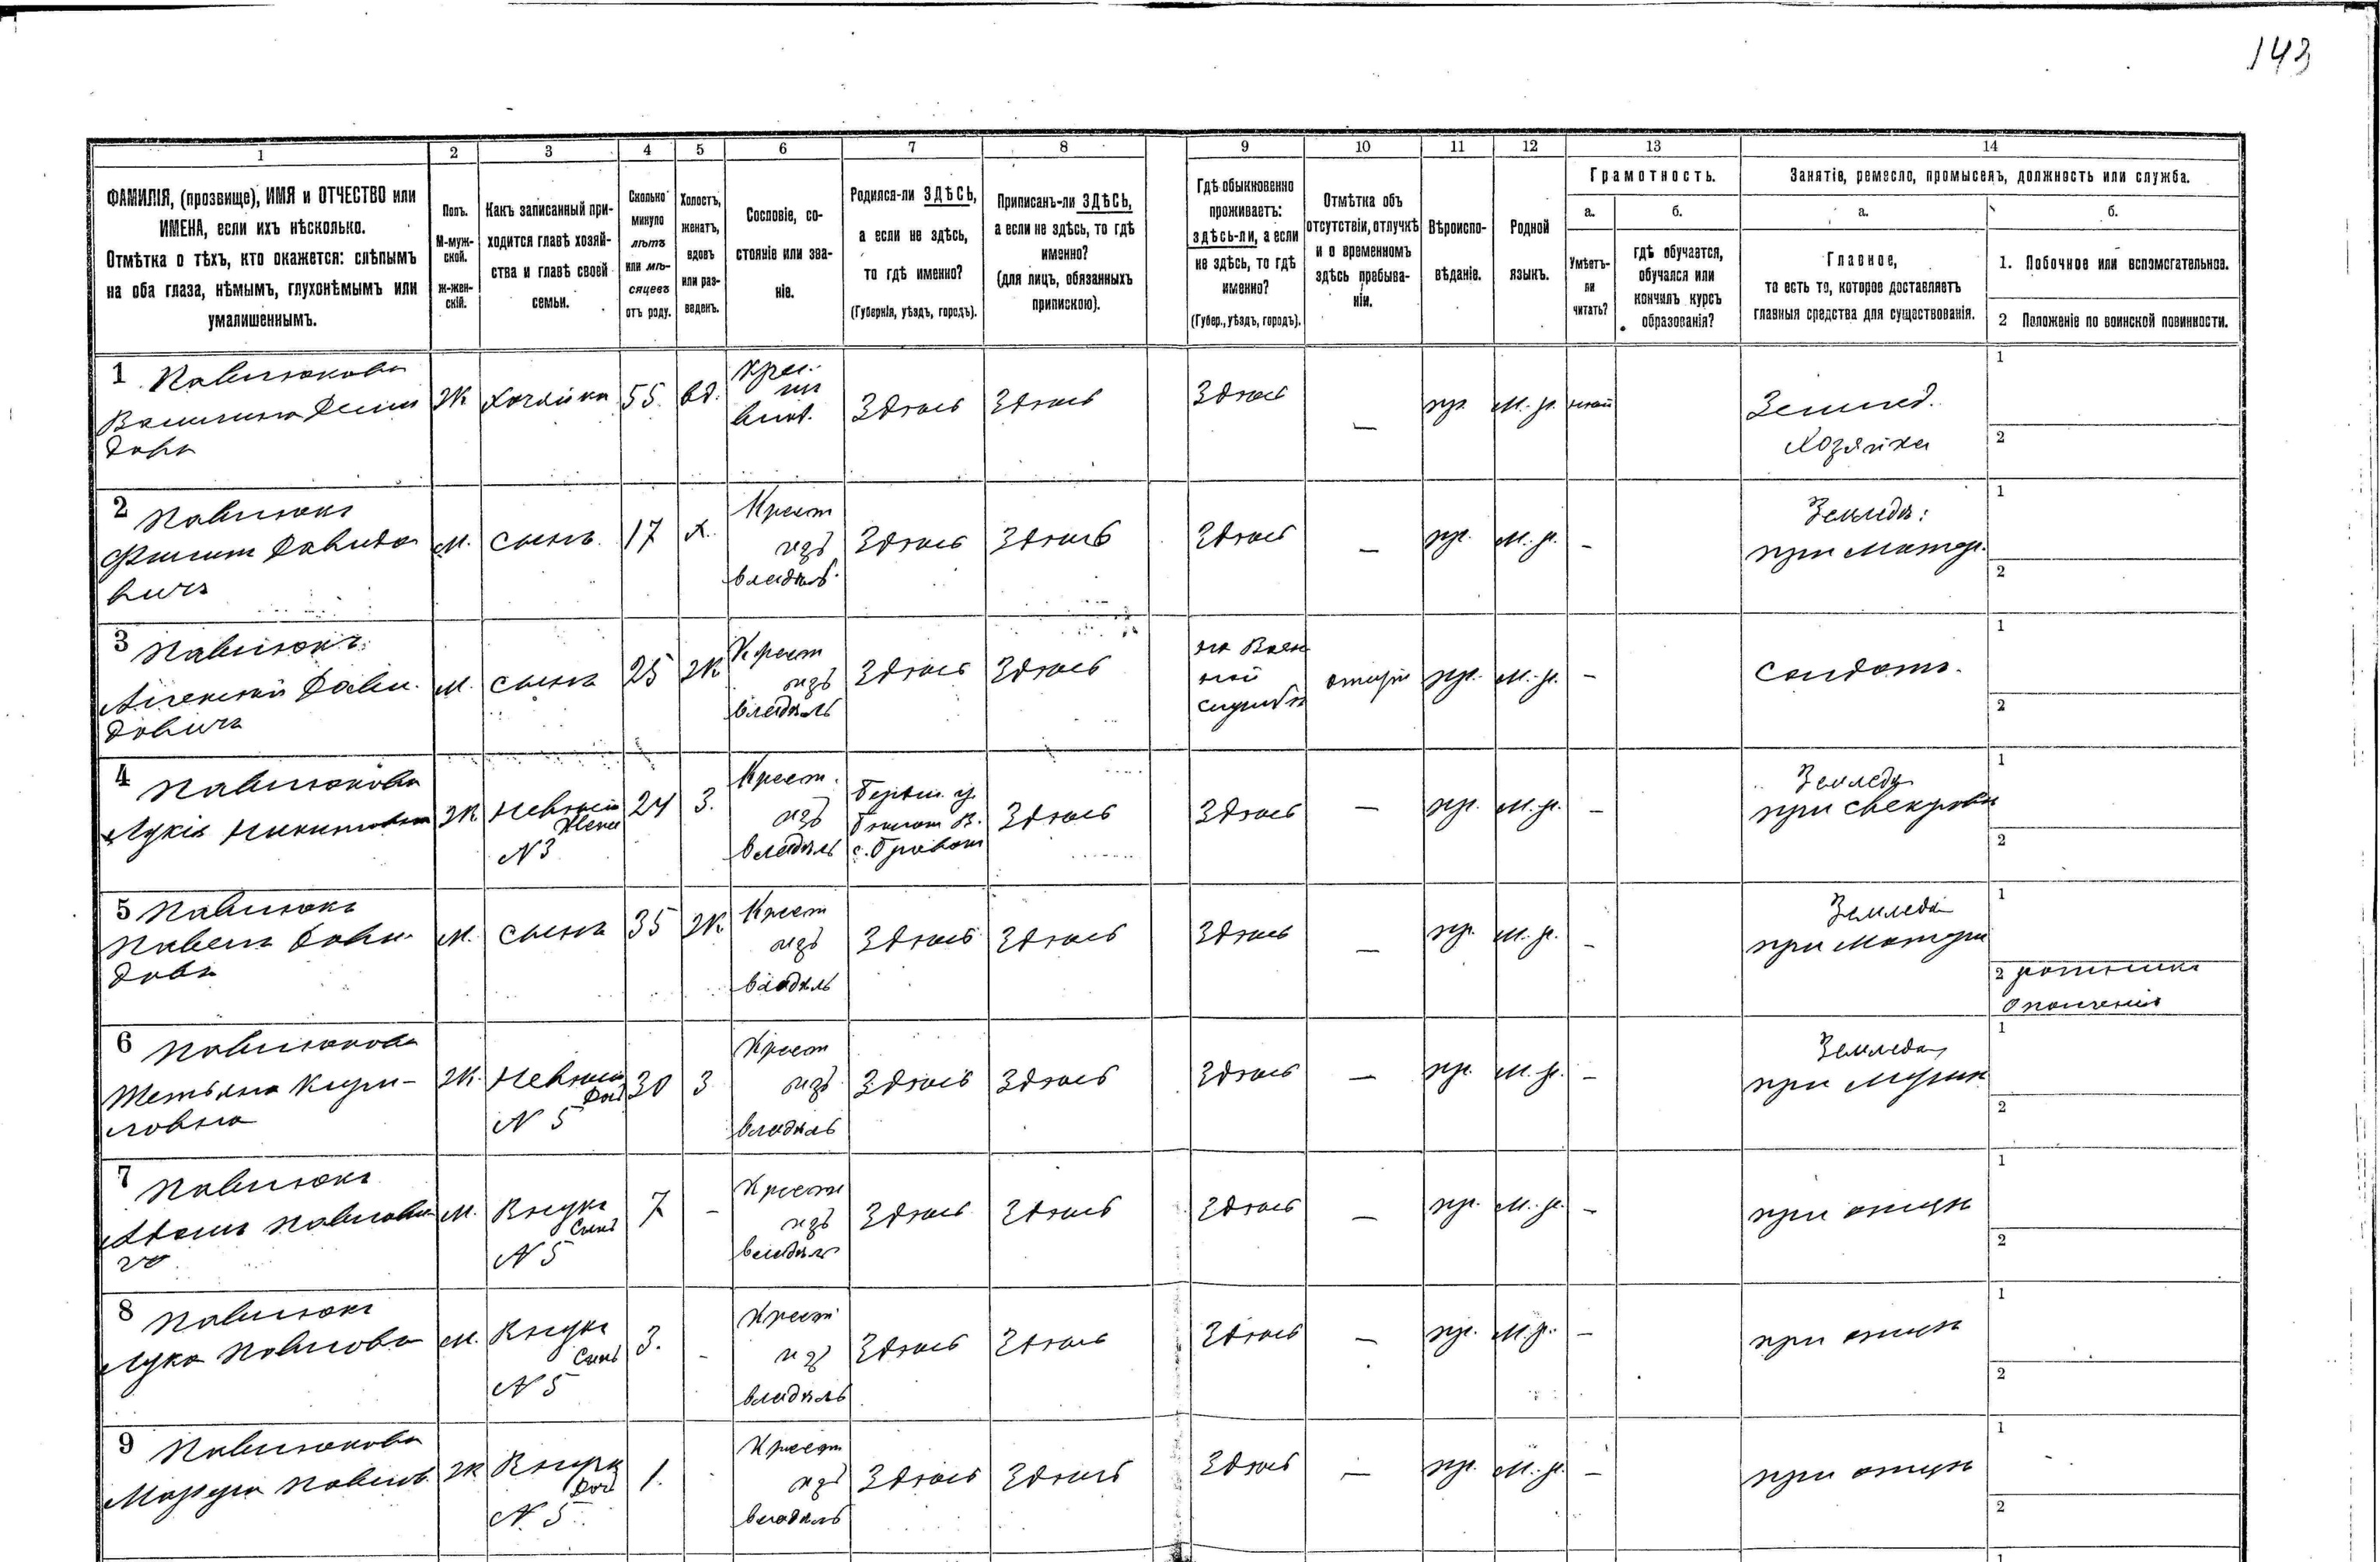 143
1 2 3 4 5 6 7 8 9 10 11 12 13 14
ФАМИЛІЯ, (прозвище), ИМЯ и ОТЧЕСТВО или
ИМЕНА, если ихъ нѣсколько.
Отмѣтка о тѣхъ, кто окажется: слѣпымъ
на оба глаза, нѣмымъ, глухонѣмымъ или
умалишеннымъ.
Полъ.
М-муж-
ской.
Ж-жен-
скій.
Какъ записанный при-
ходится главѣ хозяй-
ства и главѣ своей
семьи.
Сколько
минуло
лѣтъ
или мѣ-
сяцевъ
отъ роду.
Холостъ,
женатъ,
вдовъ
или раз-
веденъ.
Сословіе, со-
стояніе или зва-
ніе.
Родился-ли ЗДѢСЬ,
а если не здѣсь,
то гдѣ именно?
(Губернія, уѣздъ, городъ).
Приписанъ-ли ЗДѢСЬ,
а если не здѣсь, то гдѣ
именно?
(для лицъ, обязанныхъ
припискою).
Гдѣ обыкновенно
проживаетъ:
здѣсь-ли, а если
не здѣсь, то гдѣ
именно?
(Губер., уѣздъ, городъ).
Отмѣтка объ
отсутствіи, отлучкѣ
и о временномъ
здѣсь пребыва-
ніи.
Вѣроиспо-
вѣданіе.
Родной
языкъ.
Грамотность.
а.
Умѣетъ-
ли
читать?
б.
гдѣ обучается,
обучался или
кончилъ курсъ
образованія?
Занятіе, ремесло, промыселъ, должность или служба.
а.
Главное,
то есть то, которое доставляетъ
главныя средства для существованія.
б.
1. Побочное или вспомогательное.
2 Положеніе по воинской повинности.
1 Павлюкова
дова
Ж
Хозяйка
55
вд.
Здѣсь
Здѣсь
Здѣсь
—
пр.
м. р.
Землед.
Хозяйка
1
2
2 Павлюкъ
Филип Давидо
вичъ
М.
сынъ
17
х.
Крест
изъ
владѣль
Здѣсь
Здѣсь
Здѣсь
—
пр.
м. р.
–
Земледѣ:
при Матер.
1
2
3 Павлюкъ
Алексѣй Дави
довичъ
М.
сынъ
25
Ж
Крест
изъ
владѣль
Здѣсь
Здѣсь
на Воен
ной
службѣ
пр.
м. р.
–
солдатъ.
1
2
4 Павлюкова
Лукія Никитовна
Ж
Невѣст
Жена
N 3
24
З.
Крест.
изъ
владѣль
Здѣсь
Здѣсь
—
пр.
м. р.
–
Земледѣ
при свекрови
1
2
5 Павлюкъ
Павелъ Дави
довъ
М.
сынъ
35
Ж
Крест
изъ
владѣль
Здѣсь
Здѣсь
Здѣсь
—
пр.
м. р.
–
Земледѣ
при Матери
1
2 ратникъ
ополченія
6 Павлюкова
Тетьяна Кири-
ловна
Ж.
Невѣст
N 5
30
З
Крест
изъ
владѣль
Здѣсь
Здѣсь
Здѣсь
—
пр.
м. р.
–
Земледѣ
при Мужѣ
1
2
7 Павлюкъ
Адамъ Павлови
М.
Внукъ
Сынъ
N 5
7
–
Крест
изъ
владѣль
Здѣсь
Здѣсь
Здѣсь
—
пр.
м. р.
–
при отцѣ
1
2
8 Павлюкъ
Лука Павлова
М.
Внукъ
Сынъ
N 5
3.
–
Крест
изъ
владѣль
Здѣсь
Здѣсь
Здѣсь
—
пр.
м. р.
–
при отцѣ
1
2
9 Павлюкова
Ж
Внука
Доч
N 5
1.
Крест
изъ
владѣль
Здѣсь
Здѣсь
Здѣсь
—
пр.
м. р.
–
при отцѣ
1
2
1